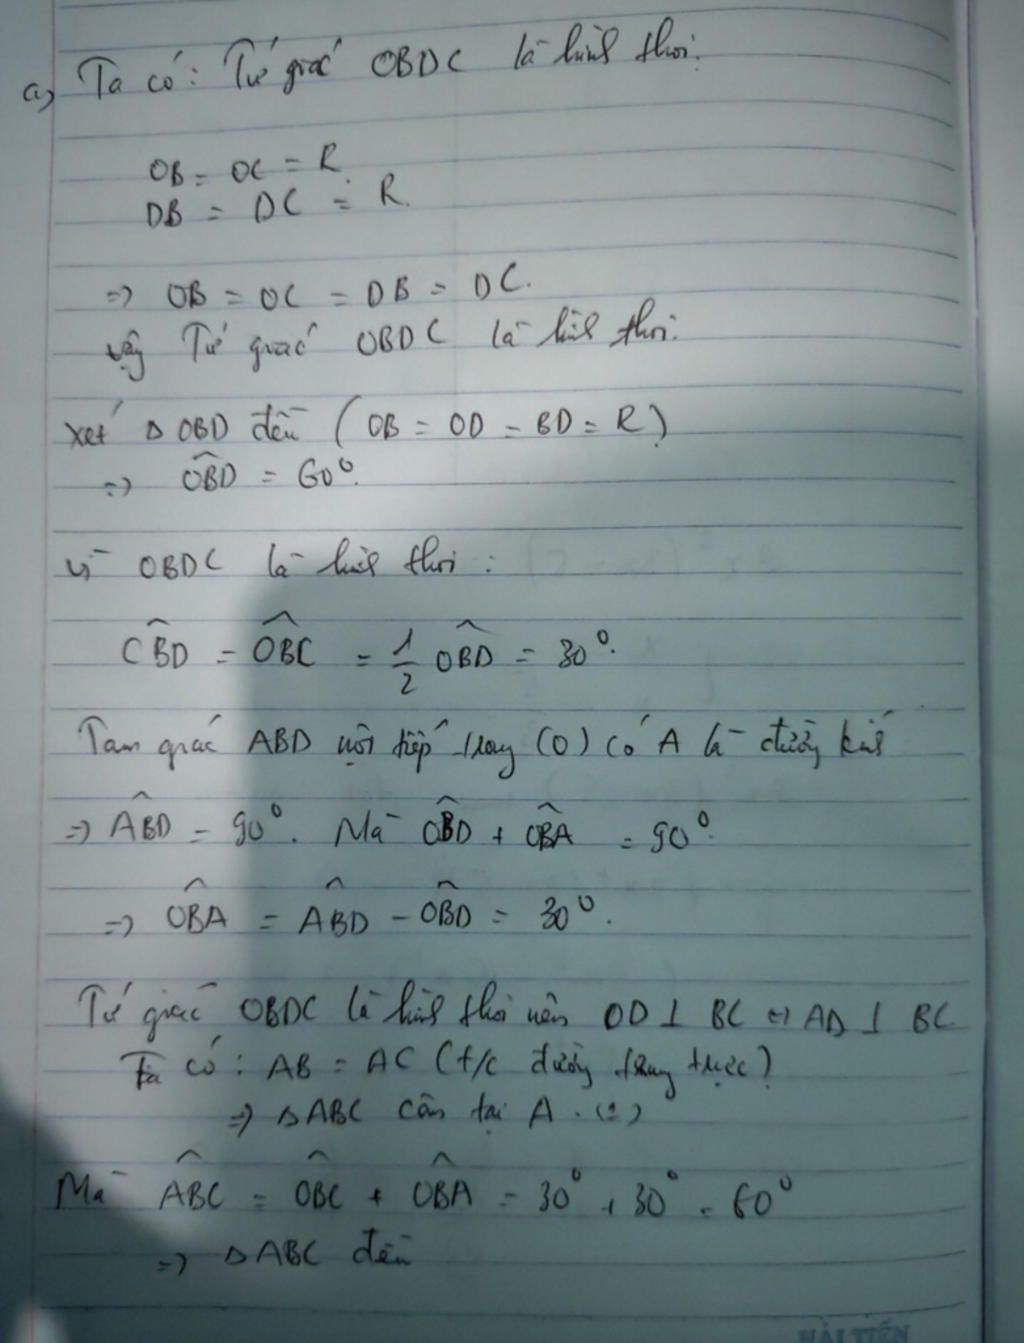 a) Ta có: Tứ giác OBDC là hình thoi.
OB = OC = R
DB = DC = R.
=> OB = OC = DB = DC.
vậy Tứ giác OBDC là hình thoi.
Xét Δ OBD đều (OB = OD = BD = R)
=> \widehat{OBD} = 60°.
Vì OBDC là hình thoi :
\widehat{CBD} = \widehat{OBC} = \frac{1}{2} \widehat{OBD} = 30°.
Tam giác ABD nội tiếp trong (O) có A là đường kính
=> \widehat{ABD} = 90°. Mà \widehat{OBD} + \widehat{OBA} = 90°.
=> \widehat{OBA} = \widehat{ABD} - \widehat{OBD} = 30°.
Tứ giác OBDC là hình thoi nên OD ⊥ BC <=> AD ⊥ BC
Ta có : AB = AC (t/c đường trung trực)
=> Δ ABC cân tại A . (1)
Mà \widehat{ABC} = \widehat{OBC} + \widehat{OBA} = 30° + 30° = 60°
=> Δ ABC đều
HẢI TIẾN